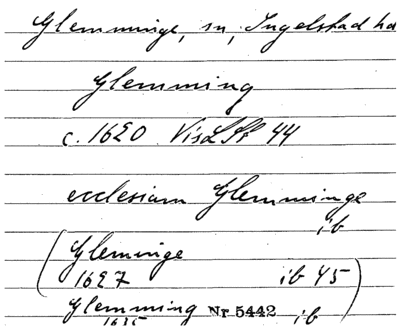 Glemminge, sn, Ingelstad hd
Glemming
c. 1620 VisLSt 44
ecclesiam Glemminge
ib
(Gleminge
1627 ib 45)
Glemming Nr 5442 ib
1635